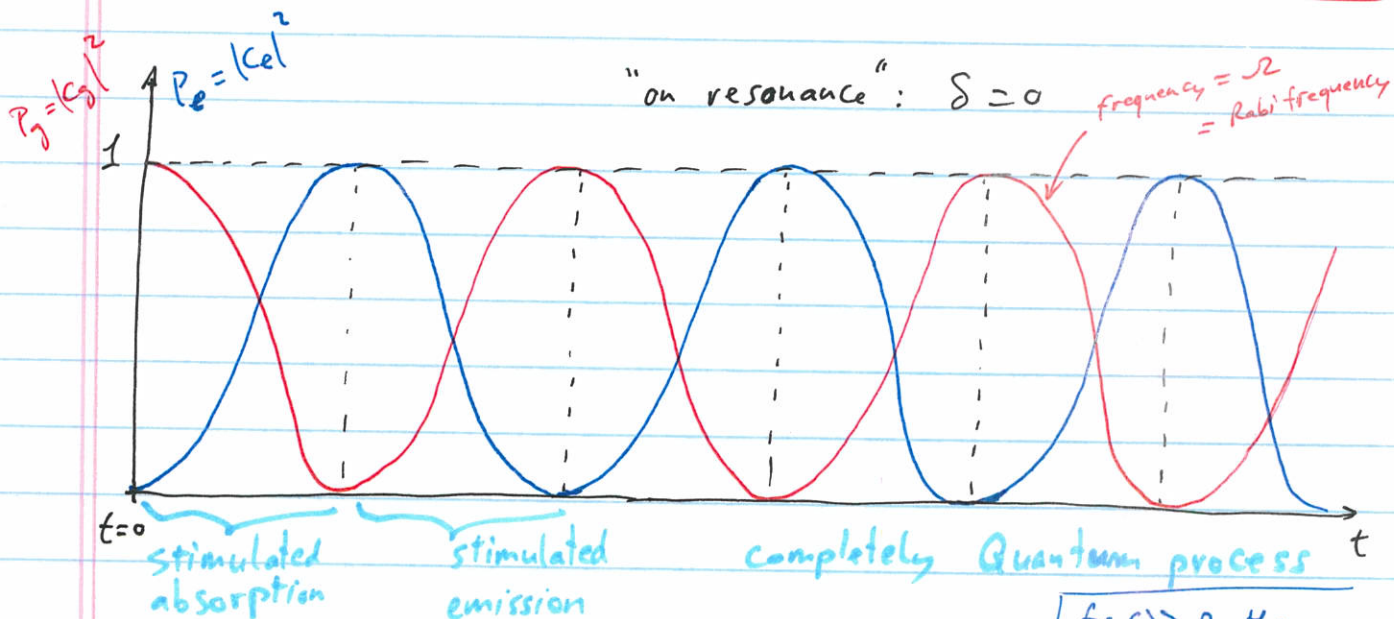 P_g = |C_g|²
P_e = |C_e|²
"on resonance": δ = 0
frequency = Ω
= Rabi frequency
1
t=0
t
stimulated
absorption
stimulated
emission
completely Quantum process